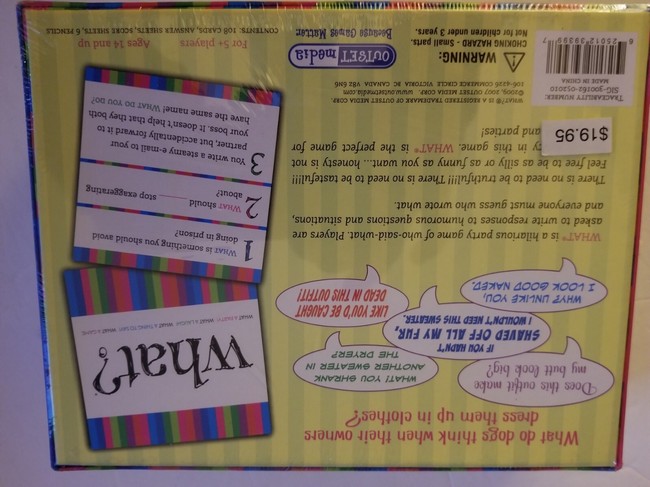 What do dogs think when their owners
dress them up in clothes?
Does this outfit make
my butt look big?
WHAT! YOU SHRANK
ANOTHER SWEATER IN
THE DRYER?
IF YOU HADN'T
SHAVED OFF ALL MY FUR,
I WOULDN'T NEED THIS SWEATER.
WHY? UNLIKE YOU,
I LOOK GOOD NAKED.
LIKE YOU'D BE CAUGHT
DEAD IN THIS OUTFIT!
what?
WHAT A PARTY! WHAT A LAUGH! WHAT A THING TO SAY! WHAT A GAME
WHAT?® is a hilarious party game of who-said-what. Players are
asked to write responses to humorous questions and situations,
and everyone must guess who wrote what.
There is no need to be truthful!!!! There is no need to be tasteful!!!!
Feel free to be as silly or as funny as you want... honesty is not
in this game. WHAT?® is the perfect game for
and parties!
1 WHAT is something you should avoid
doing in prison?
2 WHAT should ______ stop exaggerating
about?
3 You write a steamy e-mail to your
partner, but accidentally forward it to
your boss. It doesn't help that they both
have the same name. WHAT DO YOU DO?
$19.95
WHAT?® IS A REGISTERED TRADEMARK OF OUTSET MEDIA CORP.
©2005, 2007 OUTSET MEDIA CORP. www.outsetmedia.com
106-4226 COMMERCE CIRCLE VICTORIA BC CANADA V8Z 6N6
TRACEABILITY NUMBER:
SIG-300162-052010
MADE IN CHINA
6 25012 39399 7
WARNING:
CHOKING HAZARD - Small parts.
Not for children under 3 years.
OUTSET media
Because Games Matter
For 5+ players
Ages 14 and up
CONTENTS: 108 CARDS, ANSWER SHEETS, SCORE SHEETS, 6 PENCILS